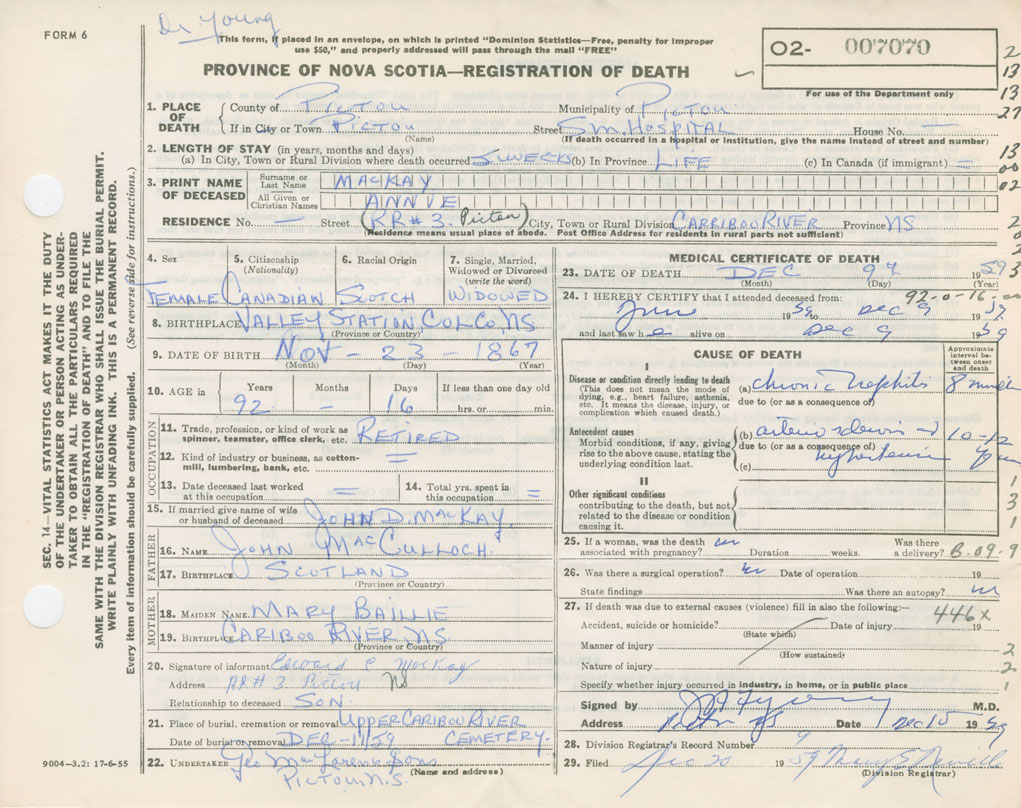 FORM 6
Dr Young
This form, if placed in an envelope, on which is printed "Dominion Statistics—Free, penalty for improper
use $50," and properly addressed will pass through the mail "FREE"
PROVINCE OF NOVA SCOTIA—REGISTRATION OF DEATH
O2- 007070
For use of the Department only
2
13
13
27
13
00
02
2
0
2
3
1. PLACE OF DEATH { County of PICTOU Municipality of PICTOU
If in City or Town PICTOU Street SM. HOSPITAL House No. —
(Name) (If death occurred in a hospital or institution, give the name instead of street and number)
2. LENGTH OF STAY (in years, months and days)
(a) In City, Town or Rural Division where death occurred 5 WECKS (b) In Province LIFE (c) In Canada (if immigrant) =
3. PRINT NAME OF DECEASED { Surname or Last Name MACKAY
All Given or Christian Names ANNIE
RESIDENCE No. — Street (RR#3. Pictou) City, Town or Rural Division CARRIBOO RIVER Province NS
(Residence means usual place of abode. Post Office Address for residents in rural parts not sufficient)
4. Sex 5. Citizenship (Nationality) 6. Racial Origin 7. Single, Married, Widowed or Divorced (write the word)
FEMALE CANADIAN SCOTCH WIDOWED
8. BIRTHPLACE VALLEY STATION, COL. CO, NS
(Province or Country)
9. DATE OF BIRTH NOV - 23 - 1867
(Month) (Day) (Year)
10. AGE in Years Months Days If less than one day old
92 - 16 hrs. or min.
OCCUPATION
11. Trade, profession, or kind of work as spinner, teamster, office clerk, etc. RETIRED
12. Kind of industry or business, as cotton-mill, lumbering, bank, etc. =
13. Date deceased last worked at this occupation =
14. Total yrs. spent in this occupation =
15. If married give name of wife or husband of deceased JOHN D. MACKAY.
FATHER
16. NAME JOHN MACCULLOCH.
17. BIRTHPLACE SCOTLAND
(Province or Country)
MOTHER
18. MAIDEN NAME MARY BAILLIE
19. BIRTHPLACE CARIBOO RIVER, NS.
(Province or Country)
20. Signature of informant Edward C MacKay
Address RR#3 Pictou NS
Relationship to deceased SON.
21. Place of burial, cremation or removal UPPER CARIBOU RIVER
Date of burial or removal DEC-11/59 CEMETERY.
22. UNDERTAKER Geo MacLarence Sons
(Name and address)
PICTOU N.S.
MEDICAL CERTIFICATE OF DEATH
23. DATE OF DEATH DEC 9th 1959
(Month) (Day)
92-0-16-00
24. I HEREBY CERTIFY that I attended deceased from:
June 1959 Dec 9 1959
and last saw h e alive on Dec 9 1959
CAUSE OF DEATH
Approximate interval between onset and death
I
Disease or condition directly leading to death
(This does not mean the mode of dying, e.g., heart failure, asthenia, etc. It means the disease, injury, or complication which caused death.)
(a) chronic nephritis 8 months
due to (or as a consequence of)
Antecedent causes
Morbid conditions, if any, giving rise to the above cause, stating the underlying condition last.
(b) 10-12
due to (or as a consequence of)
(c) hypertension years
II
Other significant conditions contributing to the death, but not related to the disease or condition causing it.
1
3
1
25. If a woman, was the death associated with pregnancy? no Duration weeks. Was there a delivery? B-09-9
26. Was there a surgical operation? no Date of operation 19
State findings Was there an autopsy? no
27. If death was due to external causes (violence) fill in also the following:— 446x
Accident, suicide or homicide? Date of injury 19
(State which)
Manner of injury 2
(How sustained)
Nature of injury 2
Specify whether injury occurred in industry, in home, or in public place 1
Signed by M.D.
Address Pictou NS Date Dec 15 1959
28. Division Registrar's Record Number 9
29. Filed Dec 20 1959 Mary E Neville
(Division Registrar)
SEC. 14—VITAL STATISTICS ACT MAKES IT THE DUTY
OF THE UNDERTAKER OR PERSON ACTING AS UNDER-
TAKER TO OBTAIN ALL THE PARTICULARS REQUIRED
IN THE "REGISTRATION OF DEATH" AND TO FILE THE
SAME WITH THE DIVISION REGISTRAR WHO SHALL ISSUE THE BURIAL PERMIT.
WRITE PLAINLY WITH UNFADING INK. THIS IS A PERMANENT RECORD.
Every item of information should be carefully supplied. (See reverse side for instructions.)
9004—3.2: 17-6-55